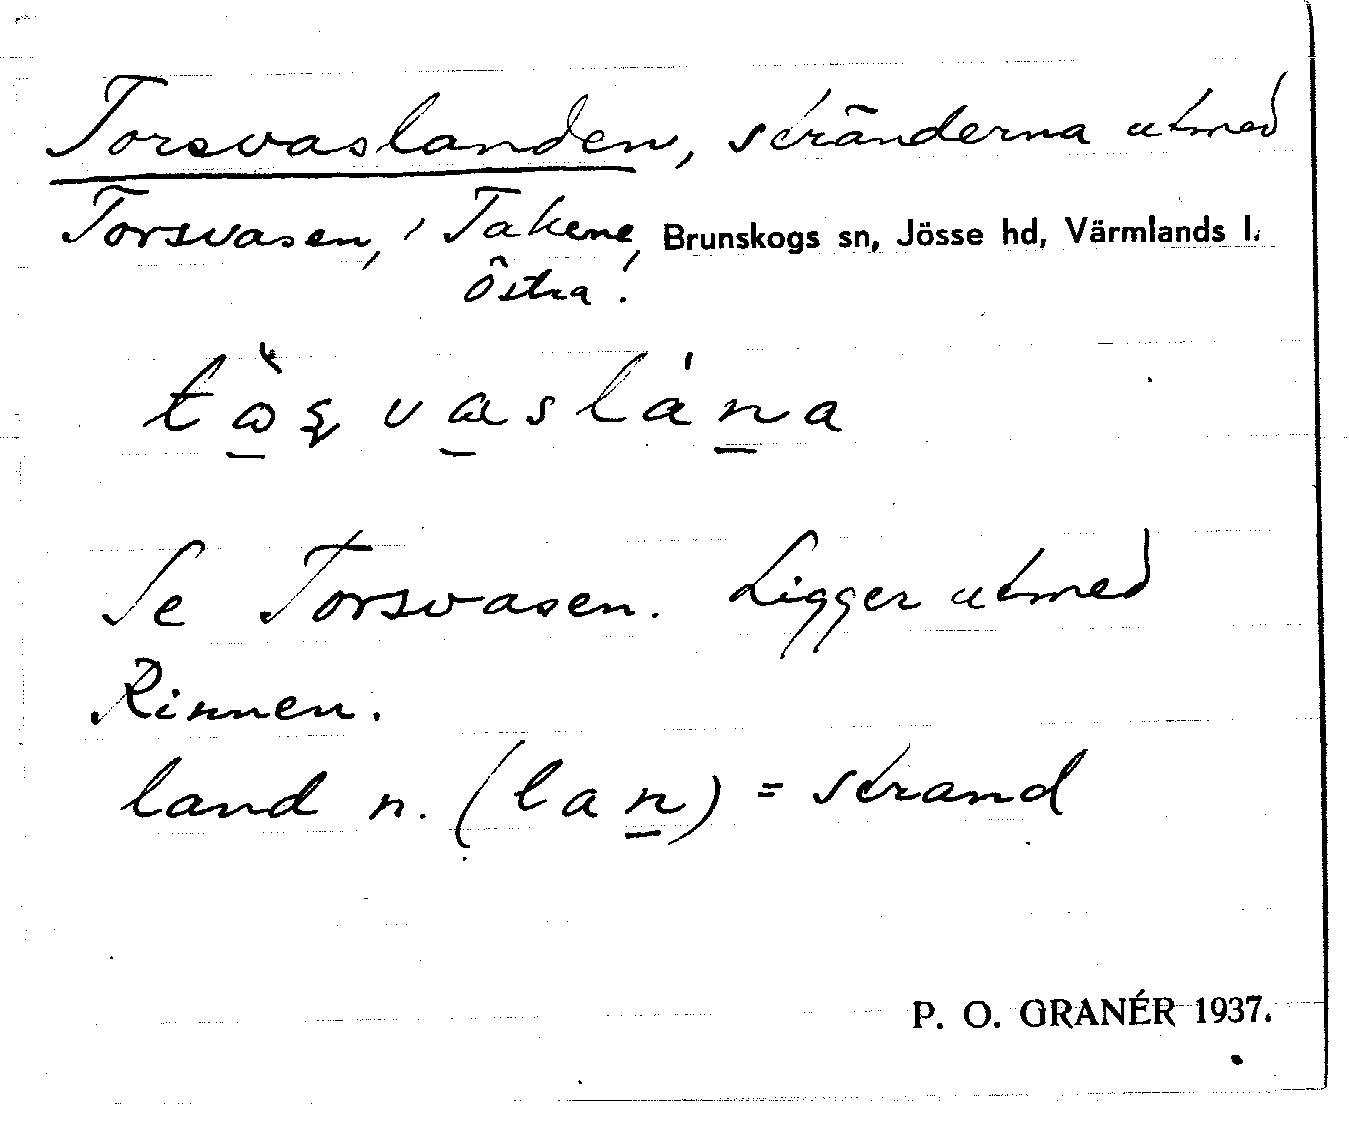 Torsvaslanden, stränderna utmed
Torsvasen, i Takene, Brunskogs sn, Jösse hd, Värmlands l.
Östra!
Se Torsvasen. Ligger utmed
Rinnen.
land n. (lan) = strand
P. O. GRANÉR 1937.